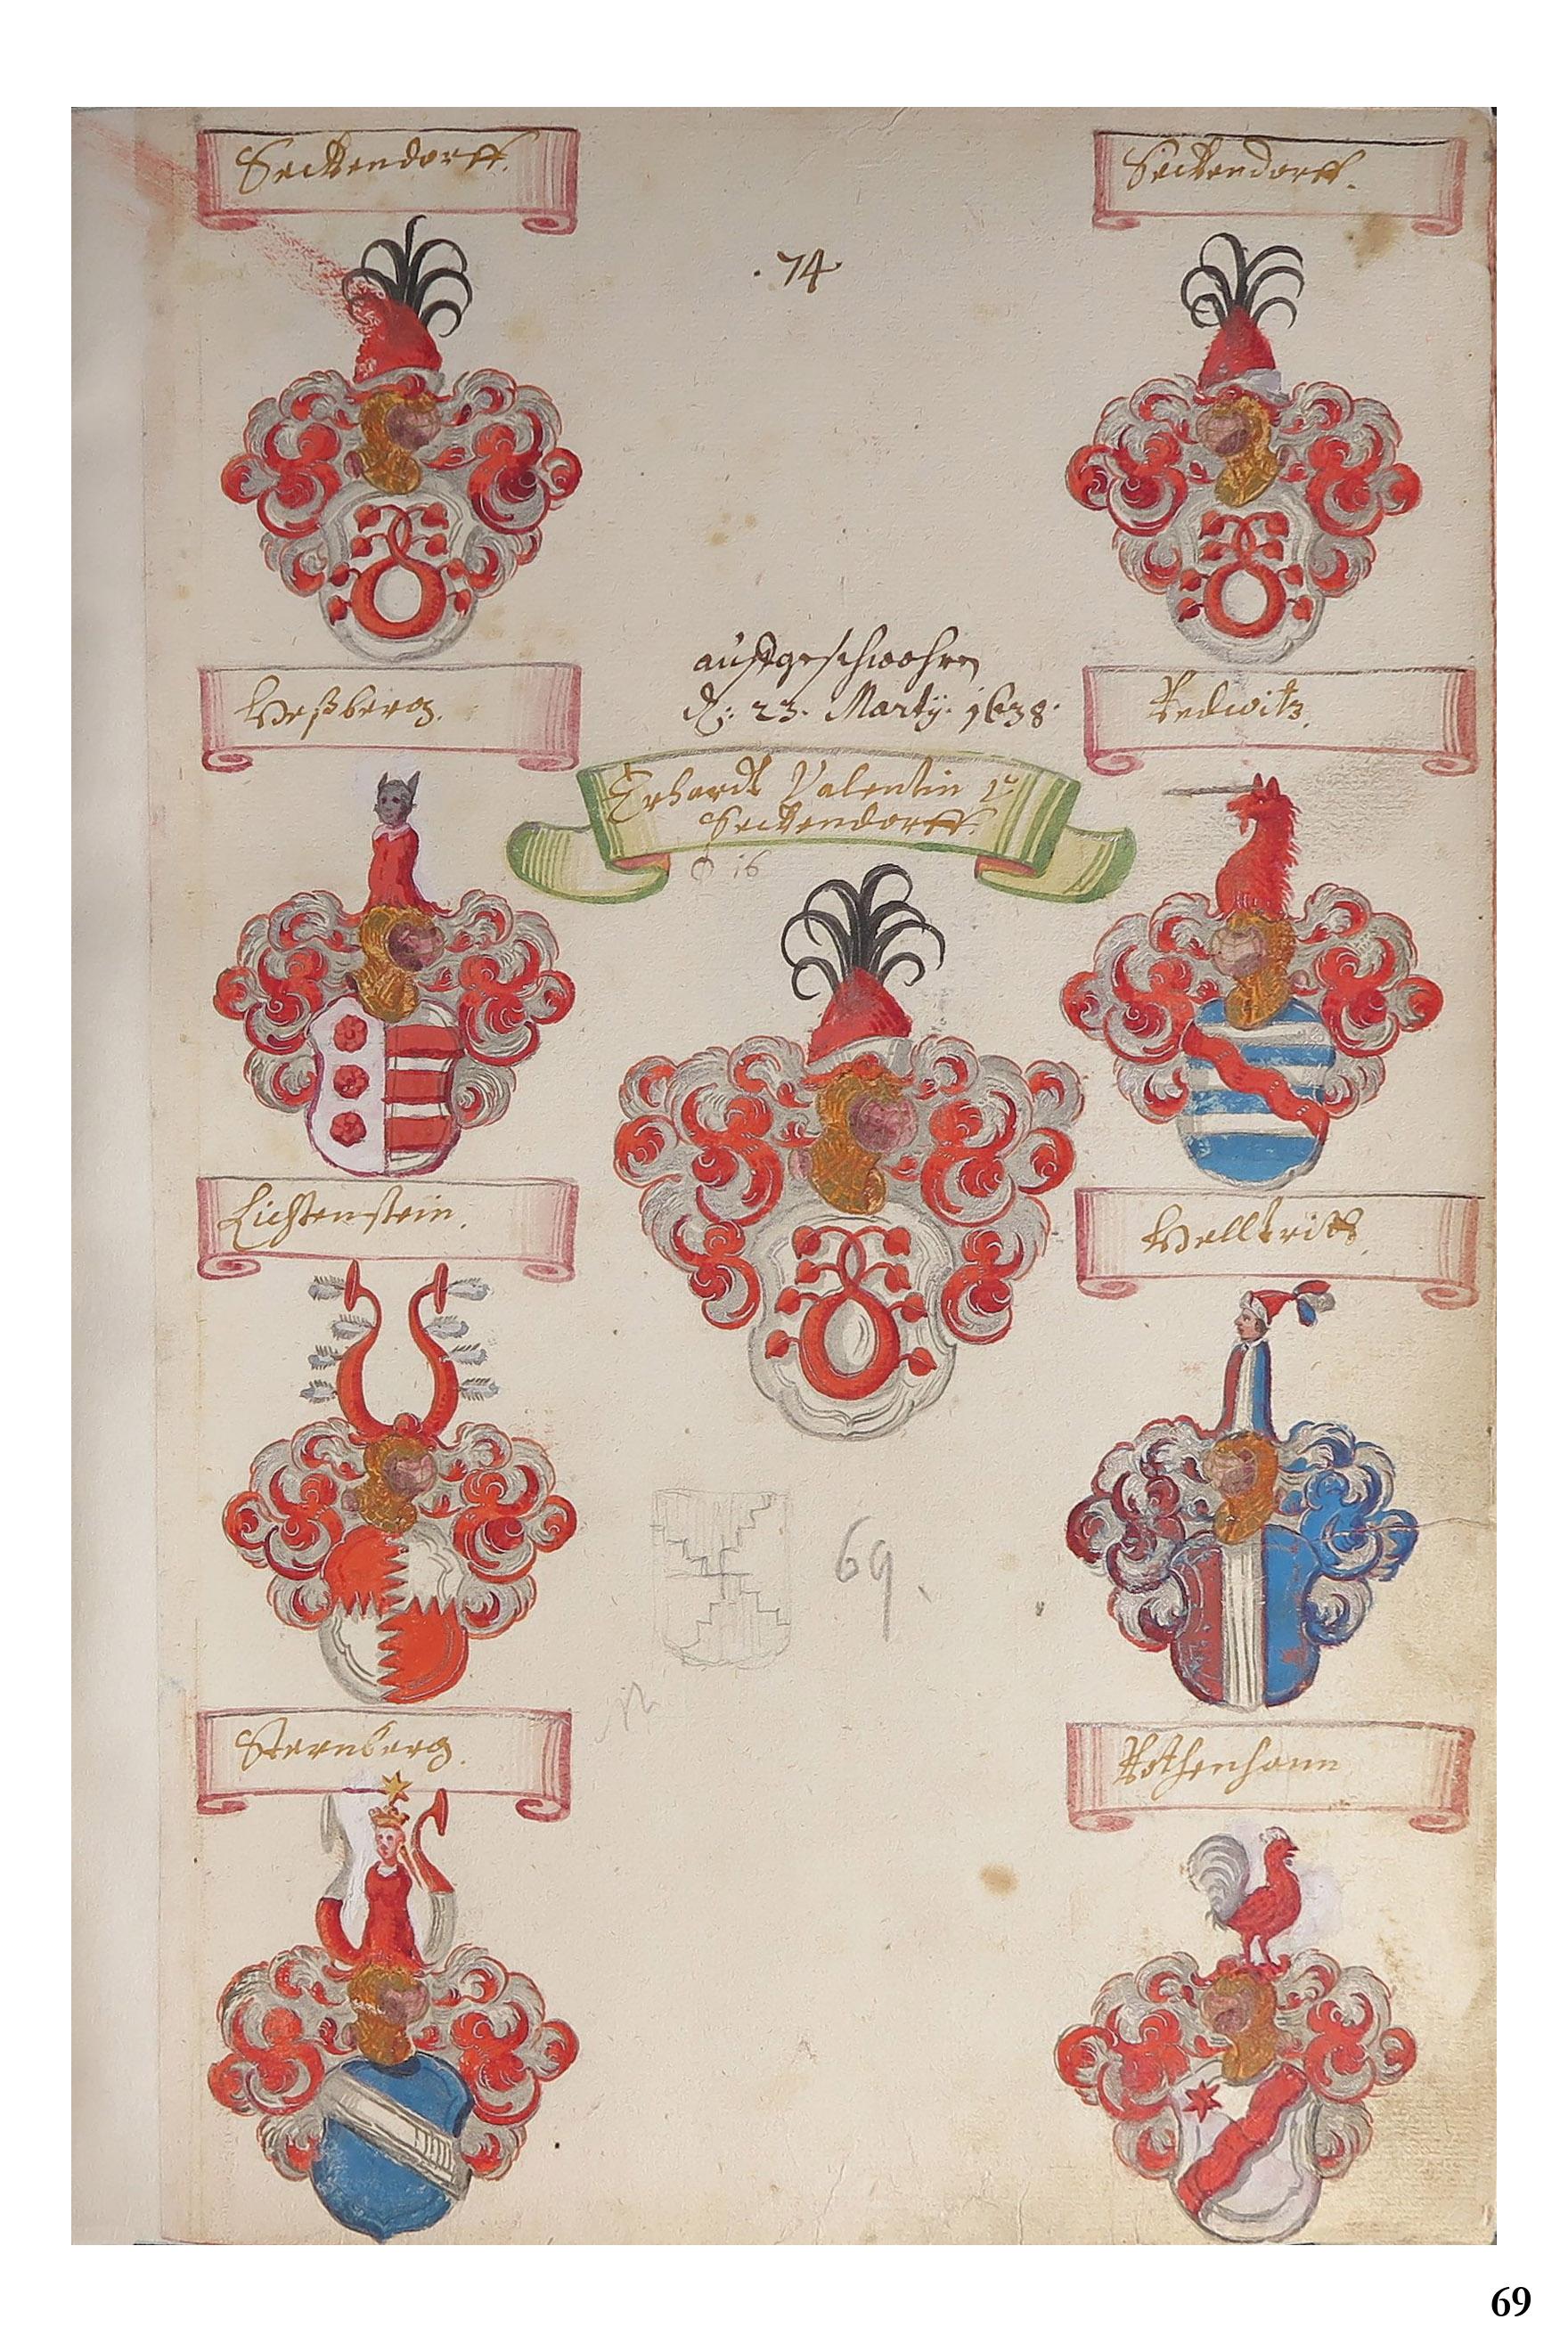 Seckendorff.
Seckendorff.
. 74 .
auffgeschwohren
d: 23. Martij. 1638.
Heßberg.
Redwitz.
Erhardt Valentin v
Seckendorff.
16
Lichtenstein.
Helltritt.
69.
Sternberg.
Rothenhann
69